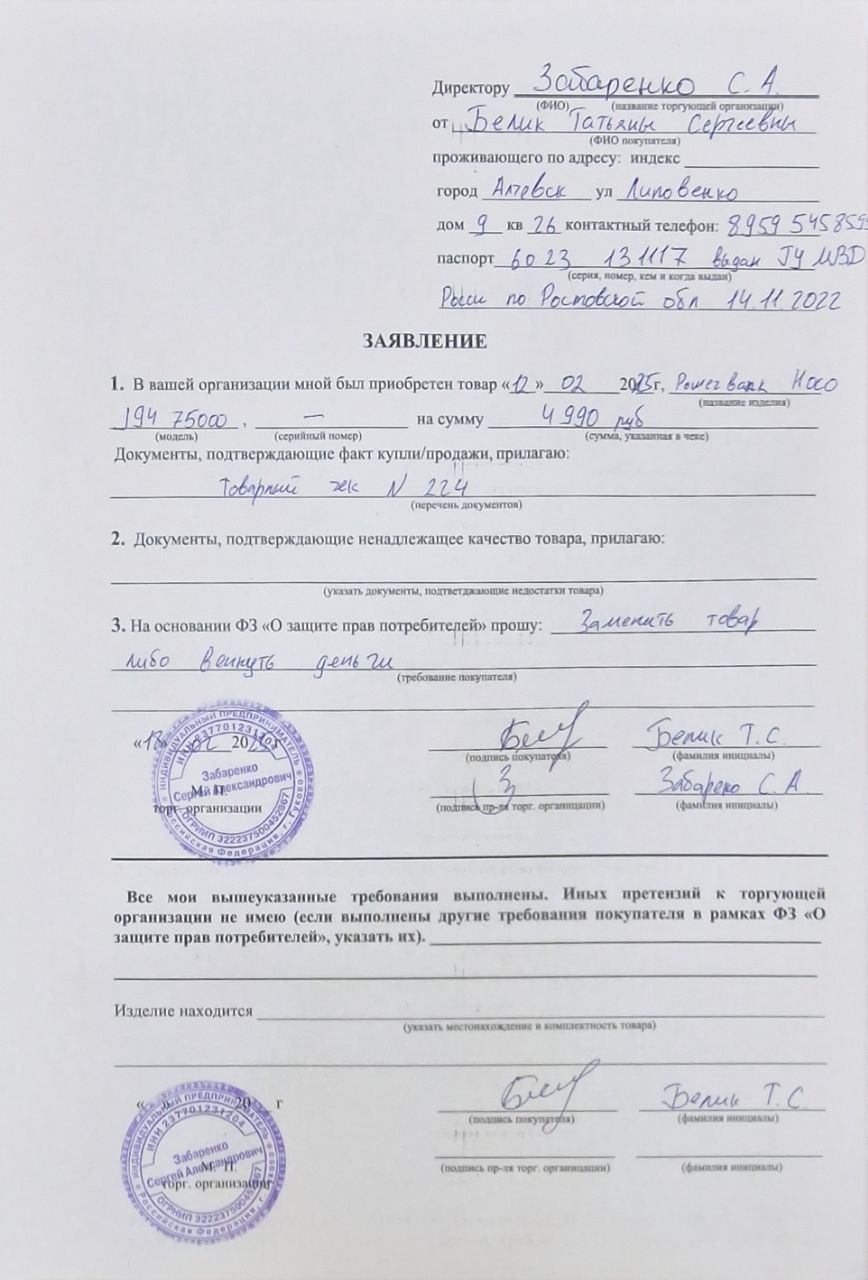 Директору Забаренко С. А.
(ФИО) (название торгующей организации)
от Белик Татьяны Сергеевны
(ФИО покупателя)
проживающего по адресу: индекс
город Алчевск ул Липовенко
дом 9 кв 26 контактный телефон: 8959 545859
паспорт 6023 131117 выдан ГУ МВД
(серия, номер, кем и когда выдан)
по Ростовской обл 14.11.2022
ЗАЯВЛЕНИЕ
1. В вашей организации мной был приобретен товар «12» 02 2025г, Power bank Hoco
(название изделия)
J94 75000 , — на сумму 4 990 руб
(модель) (серийный номер) (сумма, указанная в чеке)
Документы, подтверждающие факт купли/продажи, прилагаю:
Товарный чек N 224
(перечень документов)
2. Документы, подтверждающие ненадлежащее качество товара, прилагаю:
(указать документы, подтветджающие недостатки товара)
3. На основании ФЗ «О защите прав потребителей» прошу: Заменить товар
либо деньги
(требование покупателя)
«18» 02 20 г Белик Т. С.
(подпись покупателя) (фамилия инициалы)
М. П. С. А.
торг. организации (подпись пр-ля торг. органицации) (фамилия инициалы)
ИНДИВИДУАЛЬНЫЙ ПРЕДПРИНИМАТЕЛЬ
ИНН 237701231204
Забаренко
Сергей Александрович
ОГРНИП 322237500452867
Российская Федерация, г. Гуково
Все мои вышеуказанные требования выполнены. Иных претензий к торгующей
организации не имею (если выполнены другие требования покупателя в рамках ФЗ «О
защите прав потребителей», указать их).
Изделие находится
(указать местонахождение и комплектность товара)
« » 20 г Белик Т. С.
(подпись покупателя) (фамилия инициалы)
М. П.
торг. организации (подпись пр-ля торг. органицации) (фамилия инициалы)
ИНДИВИДУАЛЬНЫЙ ПРЕДПРИНИМАТЕЛЬ
ИНН 237701231204
Забаренко
Сергей Александрович
ОГРНИП 322237500452867
Российская Федерация, г. Гуково